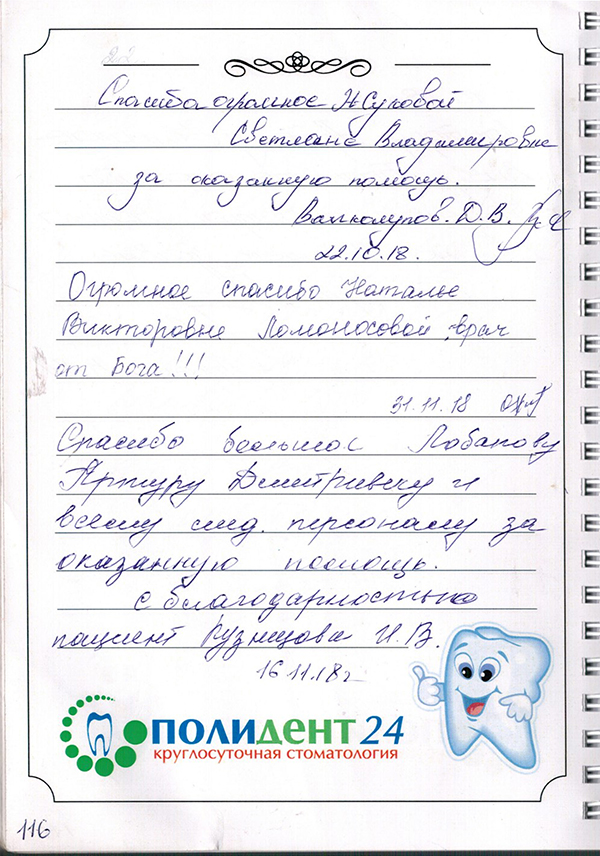 Спасибо огромное Жуковой
Светлане Владимировне
за оказанную помощь.
Д.В.
22.10.18.
Огромное спасибо Наталье
Викторовне Ломоносовой, врач
от Бога!!!
31.11.18
Спасибо большое Лобанову
Артуру Дмитриевичу и
всему мед. персоналу за
оказанную помощь.
с благодарностью
пациент Кузнецова И.В.
16 11.18г
ПОЛИДЕНТ 24
круглосуточная стоматология
116